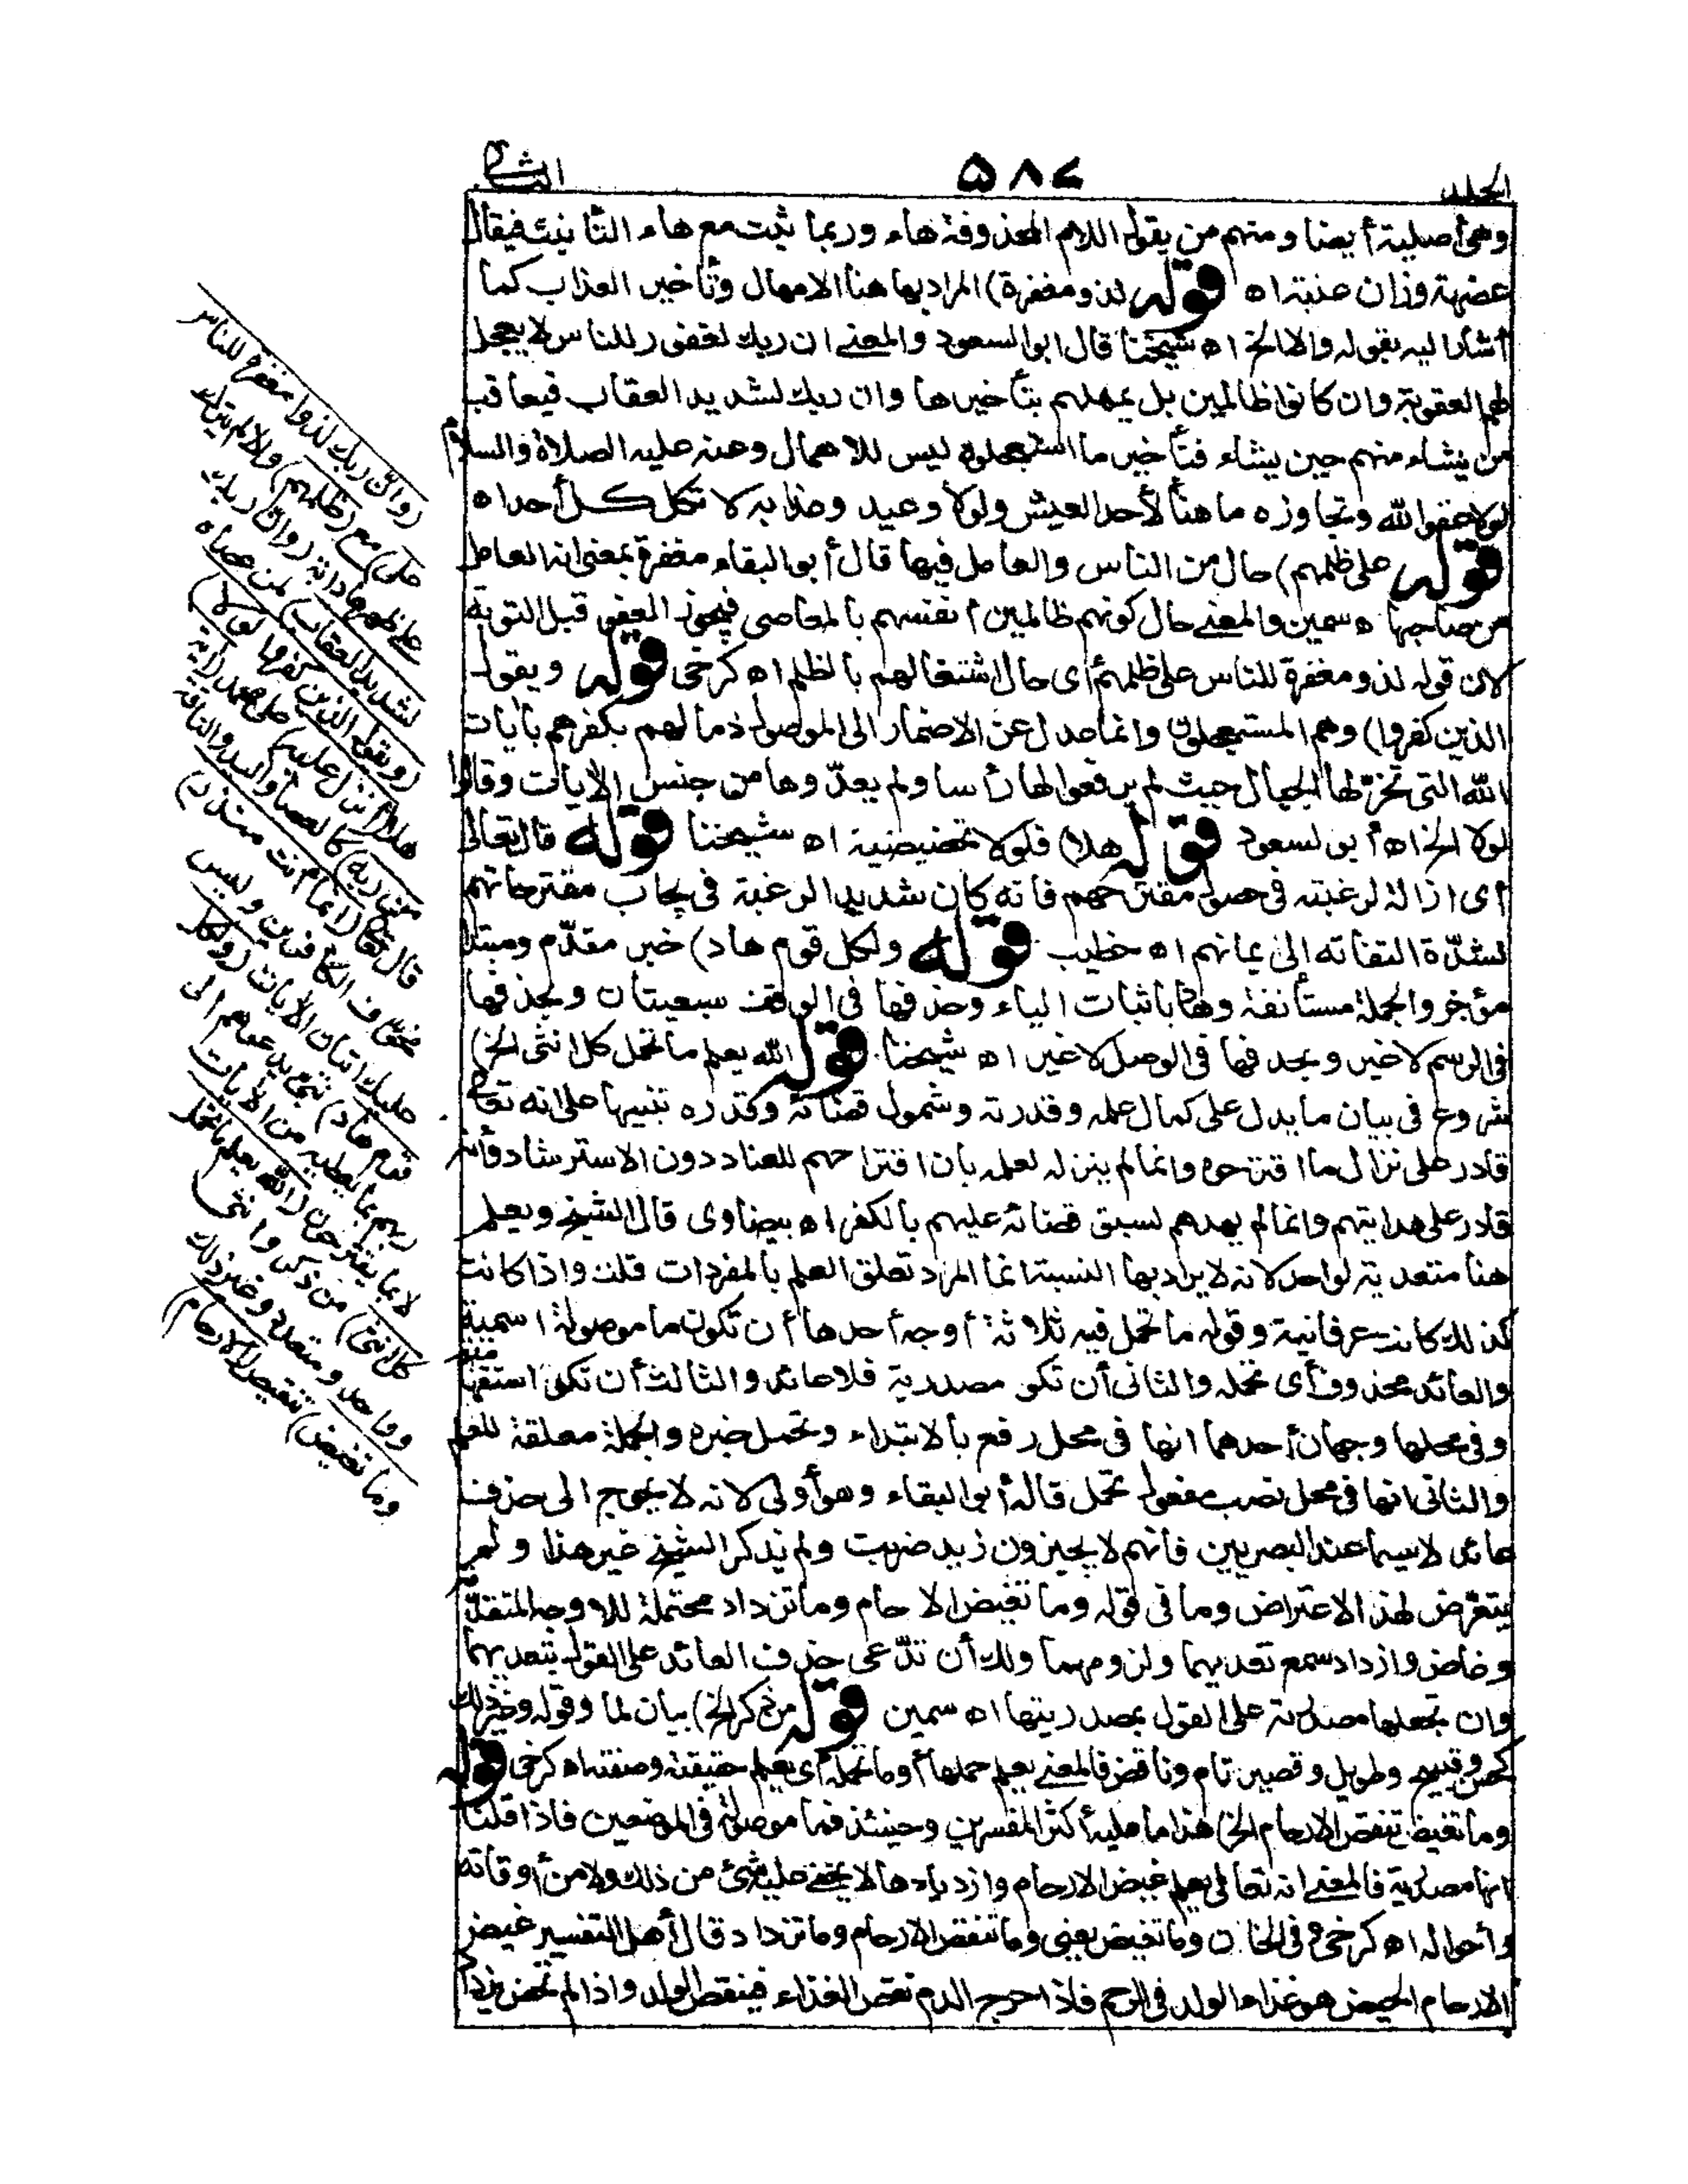 الجلد ٥٨٧ الثانى
وهى أصلية أيضا ومنهم من يقول اللام المحذوفة هاء وربما ثبت مع هاء التأنيث فيقال
عضهة وزان عنبة اه قوله لذو مغفرة) المراد بها هنا الامهال وتأخير العذاب كما
أشار اليه بقوله والا الخ اه شيخنا قال ابو السعود والمعنى ان ربك لغفور للناس لا يعجل
لهم العقوبة وان كانوا ظالمين بل يمهلهم بتأخيرها وان ربك لشديد العقاب فيعاقب
من يشاء منهم حين يشاء فتأخير ما استعجلوه ليس للاهمال وعنه عليه الصلاة والسلام
لولا عفو الله وتجاوزه ما هنأ لأحد العيش ولولا وعيده وعذابه لاتكل كل أحد اه
قوله على ظلمهم) حال من الناس والعامل فيها قال أبو البقاء مغفرة بمعنى انه العامل
من صاحبها اه سمين والمعنى حال كونهم ظالمين أنفسهم بالمعاصى فيجوز العفو قبل التوبة
لان قوله لذو مغفرة للناس على ظلمهم أى حال اشتغالهم بالظلم اه كرخى قوله ويقول
الذين كفروا) وهم المستعجلون وانما عدل عن الاضمار الى الموصول ذما لهم بكفرهم بآيات
الله التى تخر لها الجبال حيث لم يرفعوا لها رأسا ولم يعدّوها من جنس الآيات وقالوا
لولا الخ اه أبو السعود قوله هلا) فلولا تحضيضية اه شيخنا قوله قال تعالى
أى ازالة لرغبته فى حصول مقترحهم فانه كان شديد الرغبة فى ايجاب مقترحاتهم
لشدّة التفاته الى ايمانهم اه خطيب قوله ولكل قوم هاد) خبر مقدّم ومبتدأ
مؤخر والجملة مستأنفة وهاد باثبات الياء وحذفها فى الوقف سبعيتان وبحذفها
فى الرسم لا غير وبحذفها فى الوصل لا غير اه شيخنا قوله الله يعلم ما تحمل كل انثى الخ)
شروع فى بيان ما يدل على كمال علمه وقدرته وشمول قضائه وقدره تنبيها على انه تعالى
قادر على نزال ما اقترحوه وانما لم ينزله لعلمه بان اقتراحهم للعناد دون الاسترشاد وأنه
قادر على هدايتهم وانما لم يهدهم لسبق قضائه عليهم بالكفر اه بيضاوى قال الشيخ ويعلم
هنا متعدية لواحد لانه لا يراد بها النسبة انما المراد تعلق العلم بالمفردات قلت واذا كانت
كذلك كانت عرفانية وقوله ما تحمل فيه ثلاثة أوجه أحدها أن تكون ما موصولة اسمية
والعائد محذوف أى تحمله والثانى أن تكون مصدرية فلا عائد والثالث أن تكون استفهامية
وفى محلها وجهان أحدهما انها فى محل رفع بالابتداء وتحمل خبره والجملة معلقة للعلم
والثانى انها فى محل نصب مفعول تحمل قاله أبو البقاء وهو أولى لانه لا يحوج الى حذف
عائد لاسيما عند البصريين فانهم لا يجيزون زيد ضربت ولم يذكر الشيخ غير هذا ولم
يتعرّض لهذا الاعتراض وما فى قوله وما تغيض الارحام وما تزداد محتملة للاوجه المتقدّمة
وغاض وازداد سمع تعديهما ولزومهما ولك أن تدّعى حذف العائد على القول بتعديهما
وان تجعلها مصدرية على القول بمصدريتها اه سمين قوله من ذكر الخ) بيان لما وقوله وغير ذلك
كحسن وقبيح وطويل وقصير تام وناقص فالمعنى يعلم حملها أو ما تحمله أى يعلم حقيقته وصفته اه كرخى قوله
وما تغيض تنقص الارحام الخ) هذا ما عليه أكثر المفسرين وحينئذ فما موصولة فى الموضعين فاذا قلنا
انها مصدرية فالمعنى انه تعالى يعلم غيض الارحام وازديادها لا يخفى عليه شئ من ذلك ولا من أوقاته
وأحواله اه كرخى وفى الخازن وما تغيض يعنى وما تنقص الارحام وما تزداد قال أهل التفسير غيض
الارحام الحيض هو غذاء الولد فى الرحم فاذا خرج الدم نقص الغذاء فينقص الولد واذا لم تحض يزداد
(وان ربك لذو مغفرة للناس
على) مع (ظلمهم) والا لم يترك
على ظهرها دابة (وان ربك
لشديد العقاب) لمن عصاه
(ويقول الذين كفروا لولا)
هلا (أنزل عليه) على محمد (آية
من ربه) كالعصا واليد والناقة
قال تعالى (انما أنت منذر)
مخوّف الكافرين وليس
عليك اتيان الآيات (ولكل
قوم هاد) نبى يدعوهم الى
ربهم بما يعطيه من الآيات
لا بما يقترحون (الله يعلم ما تحمل
كل انثى) من ذكر وانثى
وواحد ومتعدد وغير ذلك
(وما تغيض) تنقص (الارحام)